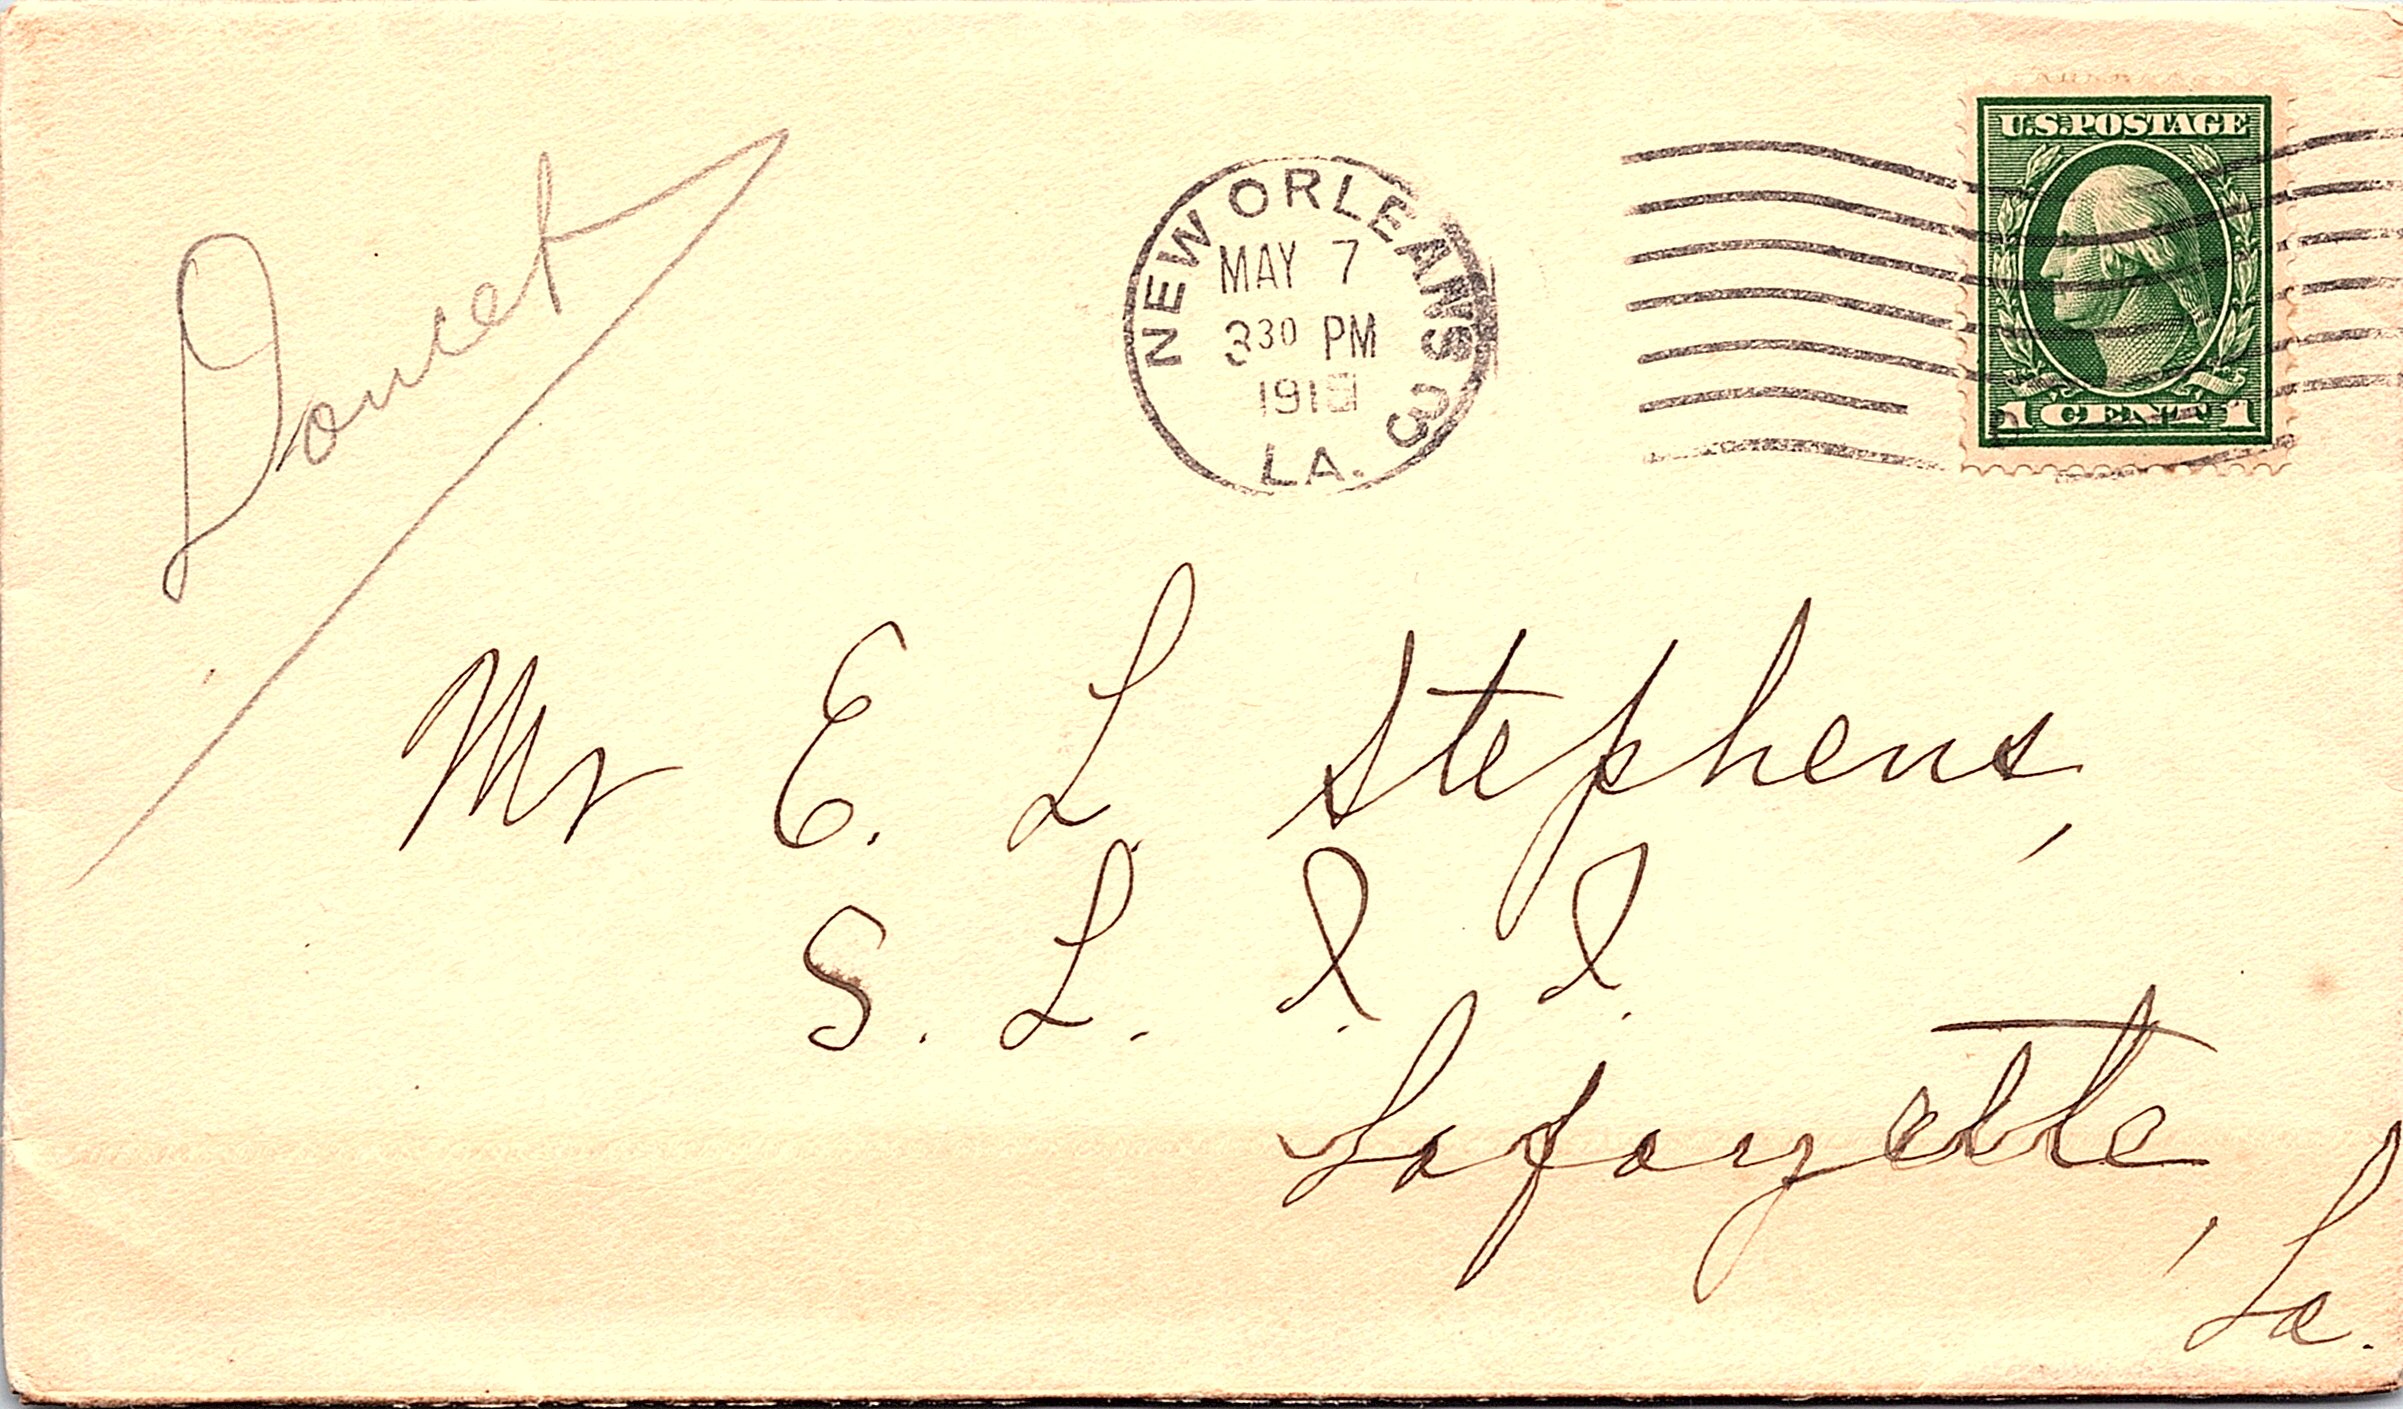 Doucet
NEW ORLEANS 3
MAY 7
3 30 PM
LA.
U.S. POSTAGE
1 CENT 1
Mr E. L Stephens,
S. L. I. I.
Lafayette,
La.